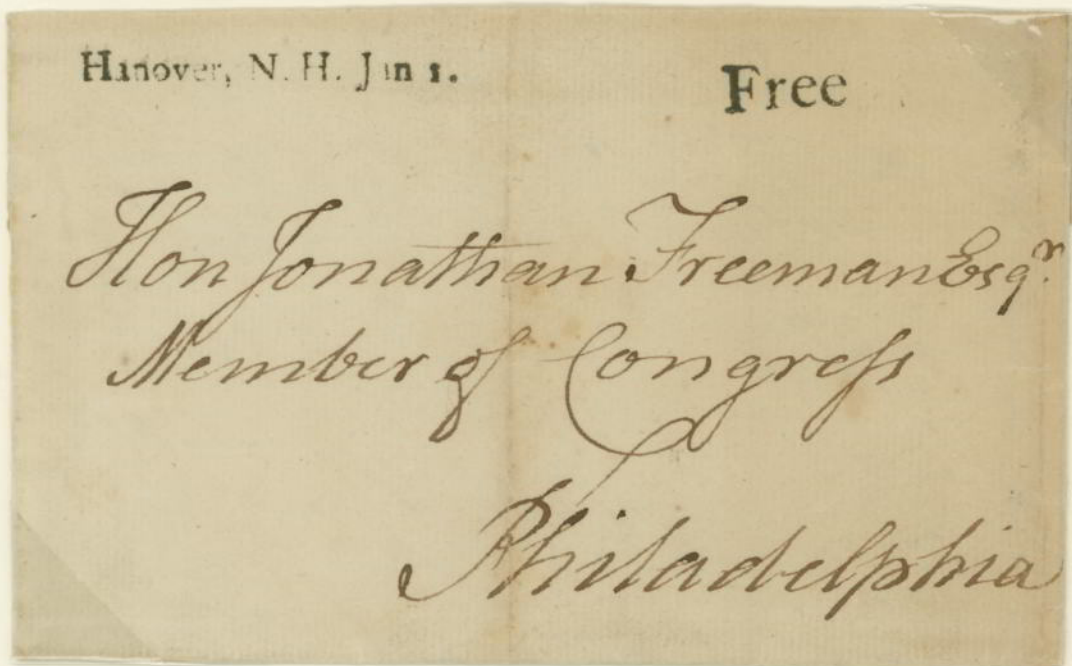 Hanover, N. H. Jan 1.
Free
Hon Jonathan Freeman Esqr.
Member of Congreſs
Philadelphia